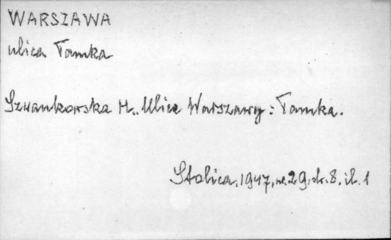 WARSZAWA
ulica Tamka
Szwankowska H., Ulice Warszawy: Tamka.
Stolica, 1947, nr. 29, str. 8, il. 1